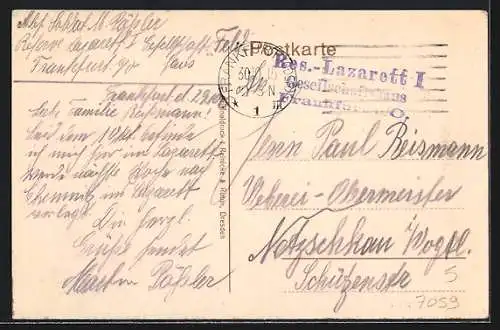 Abs. Soldat M. Päßler
Reserve Lazarett I Gesellschafts-
Frankfurt a/O haus
Feld-
Postkarte
FRANKFURT (ODER)
1
Res.-Lazarett I
Gesellschaftshaus
Frankfurt a. O.
Frankfurt d
Liebe Familie Reißmann!
Seit dem 10ten befinde
ich mich hier im Lazarett
werde nächste Woche nach
Chemnitz ins Lazarett
verlegt.
Die herzl.
Grüße sendet
Martin Päßler
Dresden
Herrn Paul Reismann
Weberei-Obermeister
Netzschkau i/Vogtl.
Schützenstr 5
7059